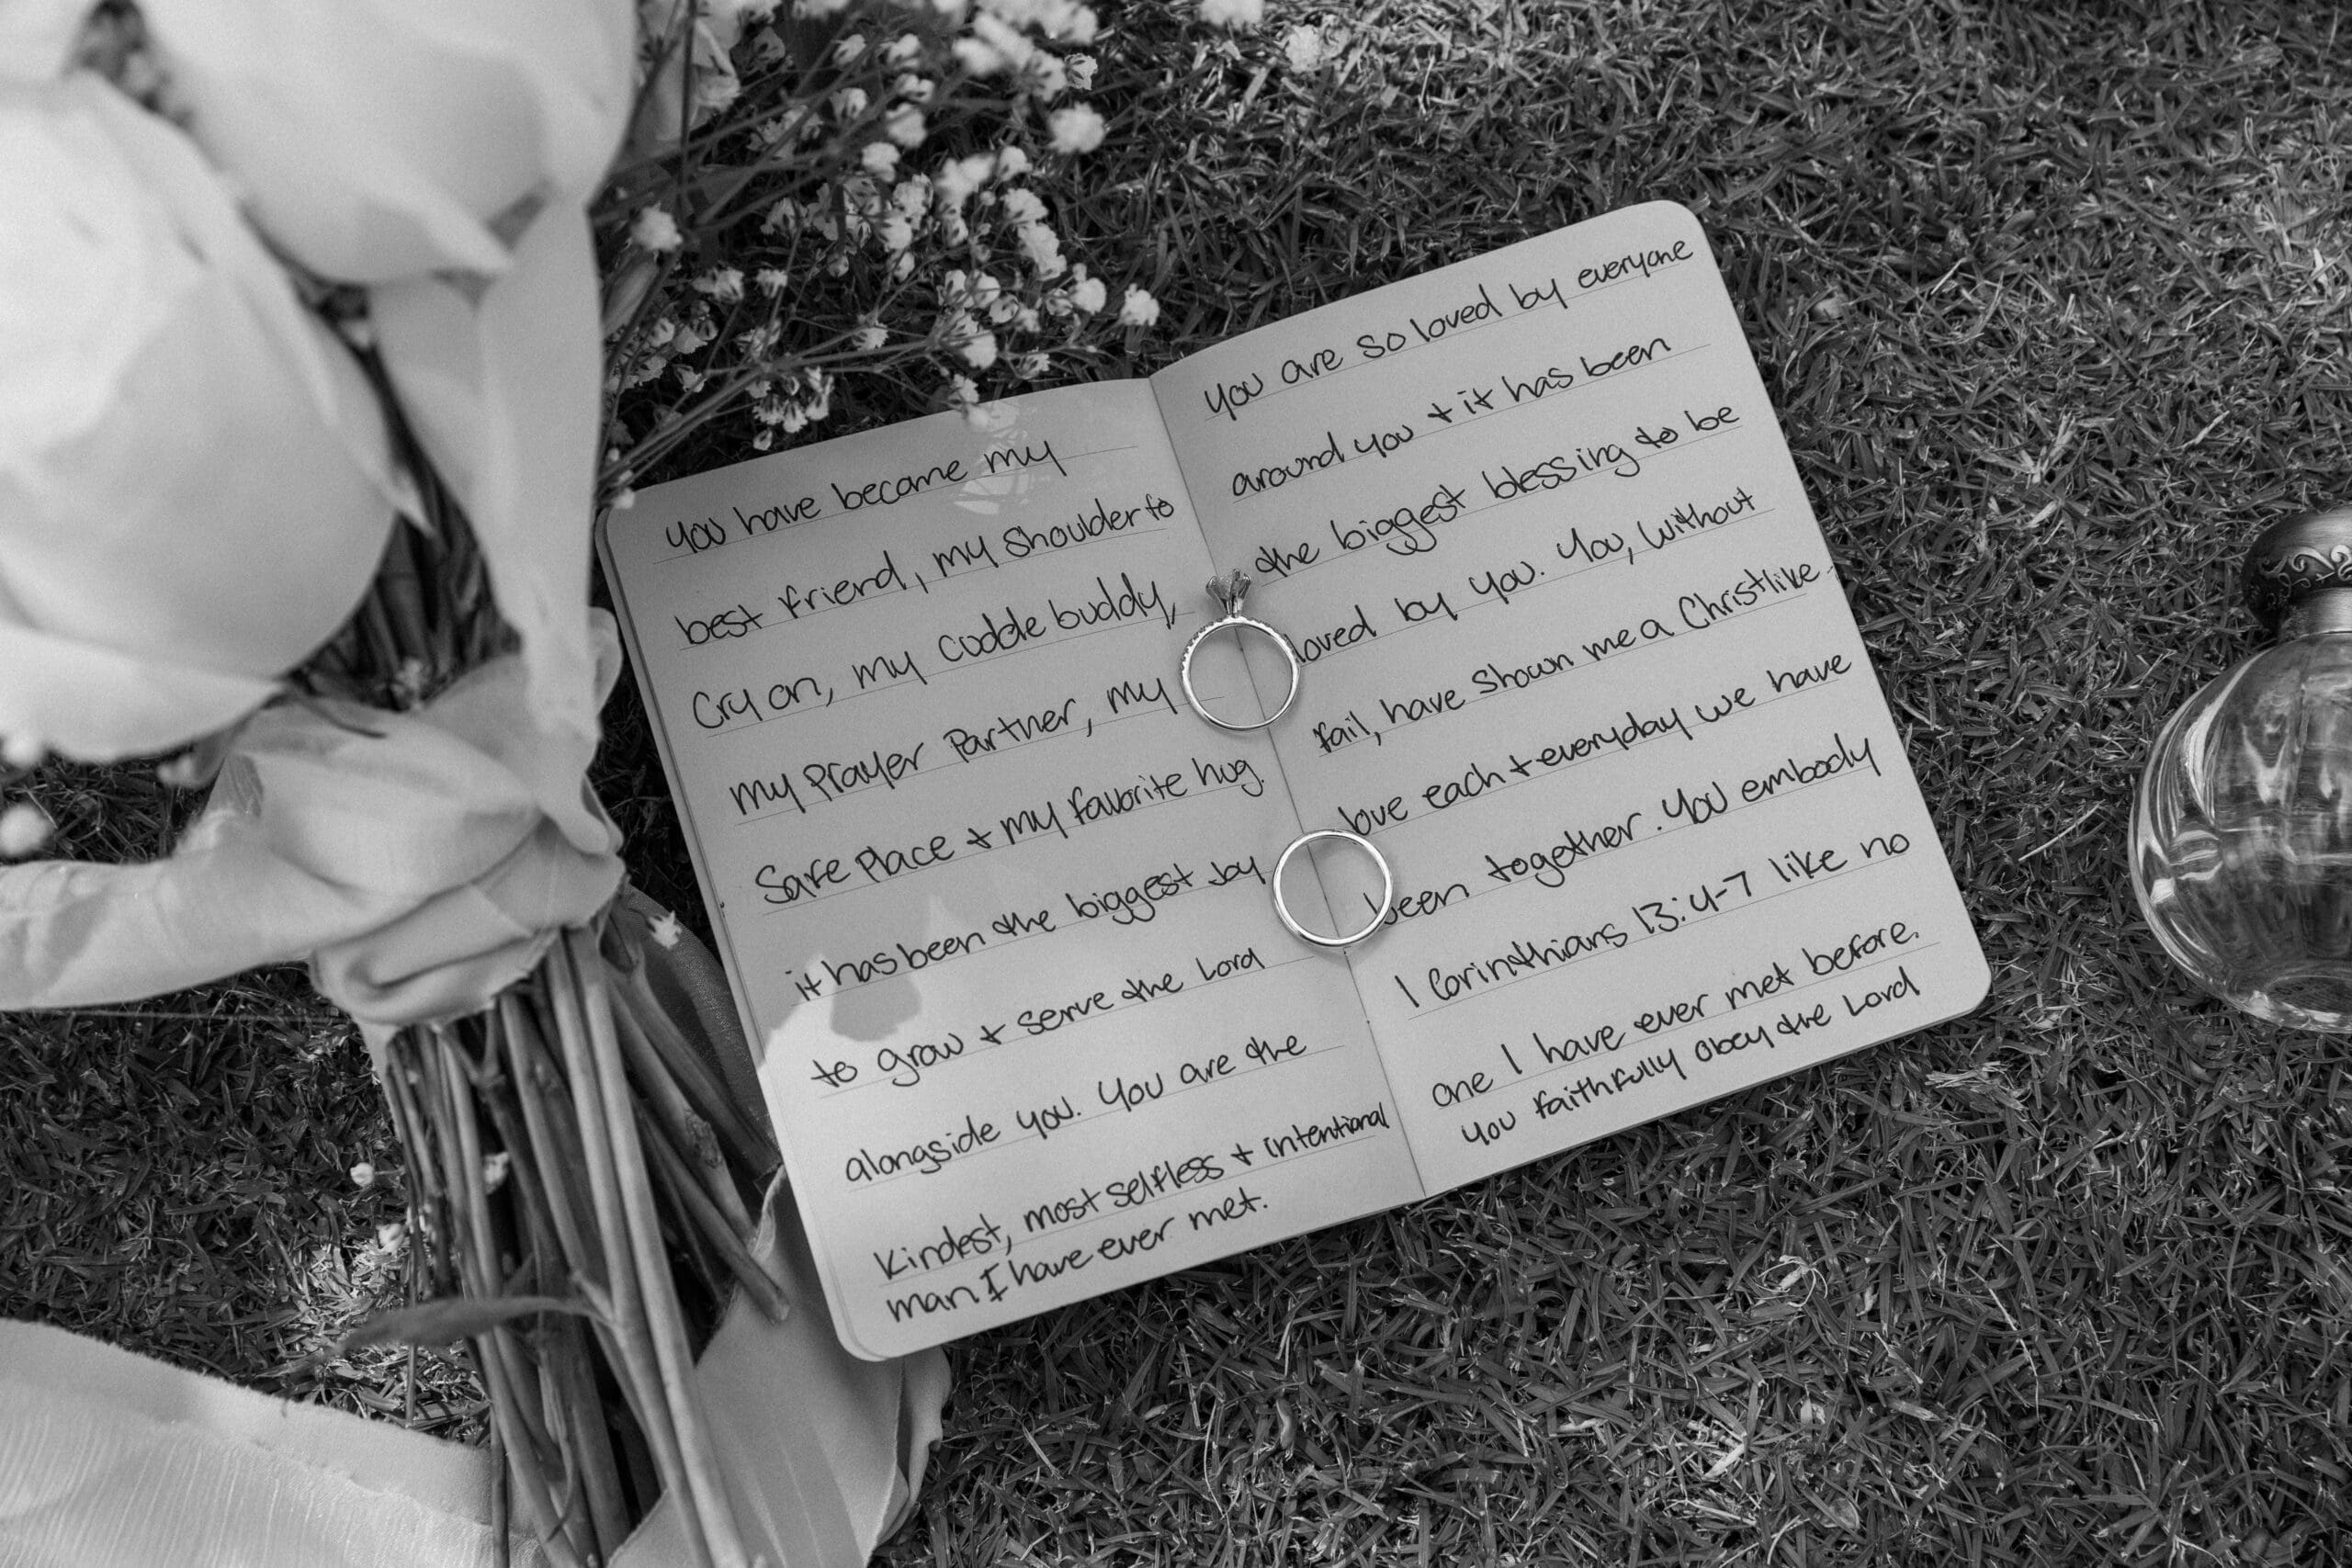 you have become my
best friend, my shoulder to
cry on, my cuddle buddy,
my prayer partner, my
safe place + my favorite hug.
it has been the biggest joy
to grow + serve the Lord
alongside you. You are the
kindest, most selfless + intentional
man I have ever met.
you are so loved by everyone
around you + it has been
the biggest blessing to be
loved by you. You, without
fail, have shown me a Christlike
love each + everyday we have
been together. You embody
1 Corinthians 13:4-7 like no
one I have ever met before.
you faithfully obey the Lord